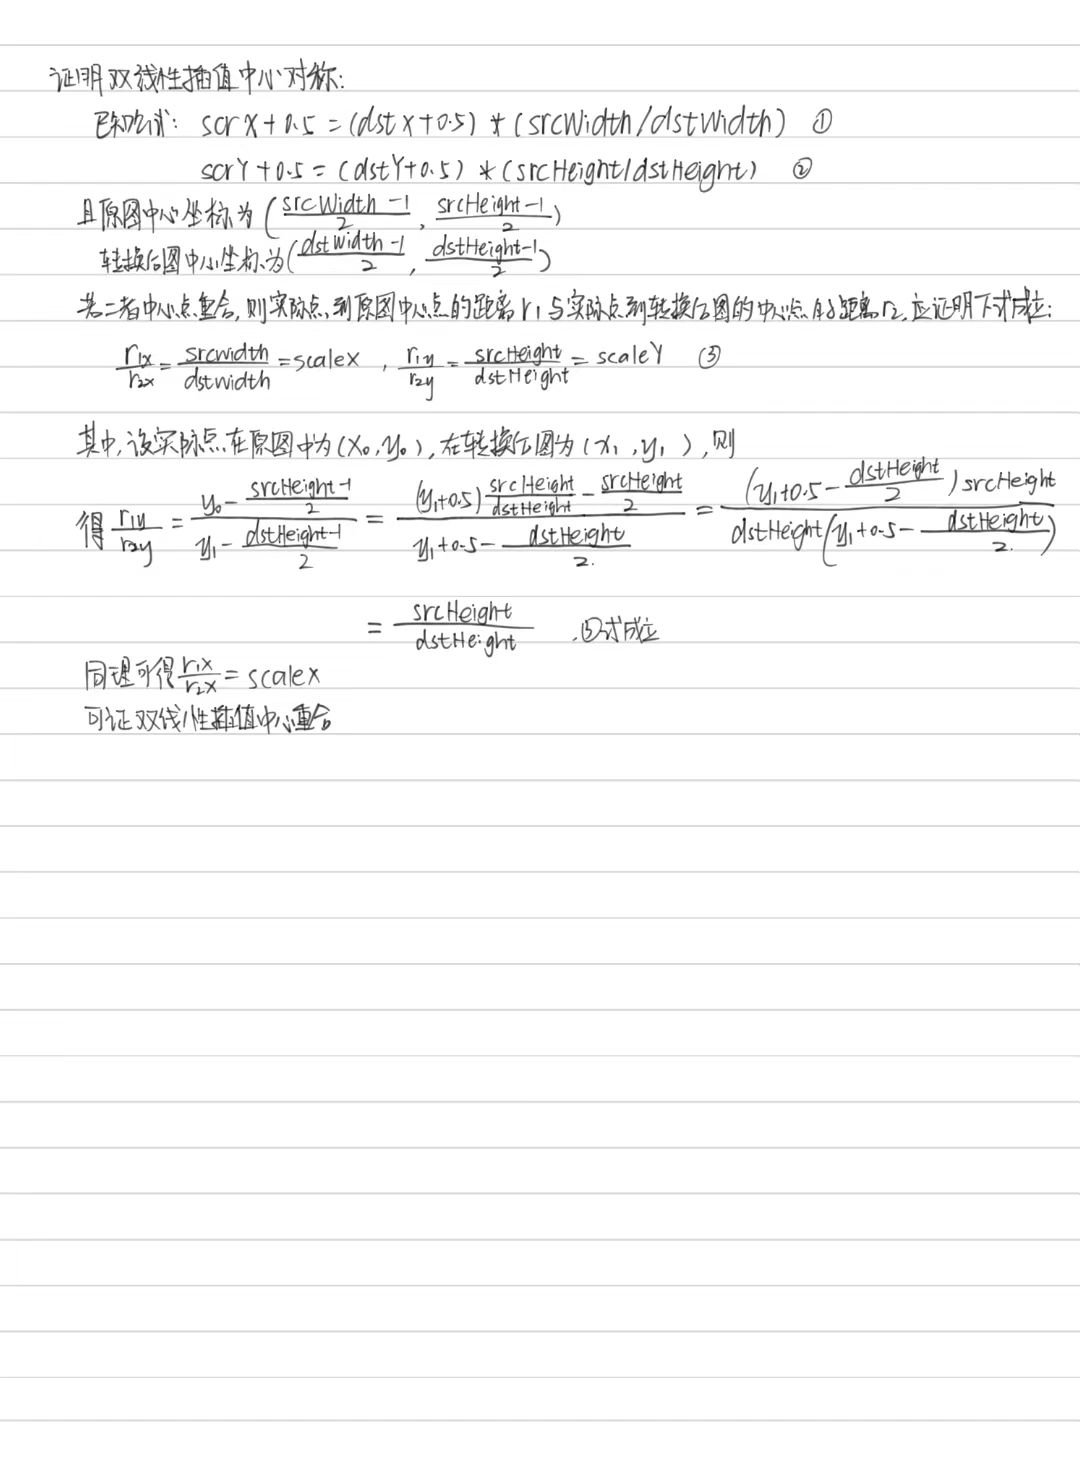 证明双线性插值中心对称:
已知公式: scrX+0.5=(dstX+0.5)*(srcWidth/dstWidth) ①
scrY+0.5=(dstY+0.5)*(srcHeight/dstHeight) ②
且原图中心坐标为(\frac{srcWidth-1}{2}, \frac{srcHeight-1}{2})
转换后图中心坐标为(\frac{dstWidth-1}{2}, \frac{dstHeight-1}{2})
若二者中心点重合,则实际点到原图中心点的距离r₁与实际点到转换后图的中心点的距离r₂,应证明下式成立:
\frac{r₁x}{r₂x}=\frac{srcwidth}{dstwidth}=scaleX , \frac{r₁y}{r₂y}=\frac{srcHeight}{dstHeight}=scaleY ③
其中,设实际点在原图中为(X₀,y₀),在转换后图为(x₁,y₁),则
得\frac{r₁y}{r₂y}=\frac{y₀-\frac{srcHeight-1}{2}}{y₁-\frac{dstHeight-1}{2}}=\frac{(y₁+0.5)\frac{srcHeight}{dstHeight}-\frac{srcHeight}{2}}{y₁+0.5-\frac{dstHeight}{2.}}=\frac{(y₁+0.5-\frac{dstHeight}{2})srcHeight}{dstHeight(y₁+0.5-\frac{dstHeight}{2.})}
=\frac{srcHeight}{dstHeight} ,③式成立
同理可得\frac{r₁x}{r₂x}=scaleX
可证双线性插值中心重合